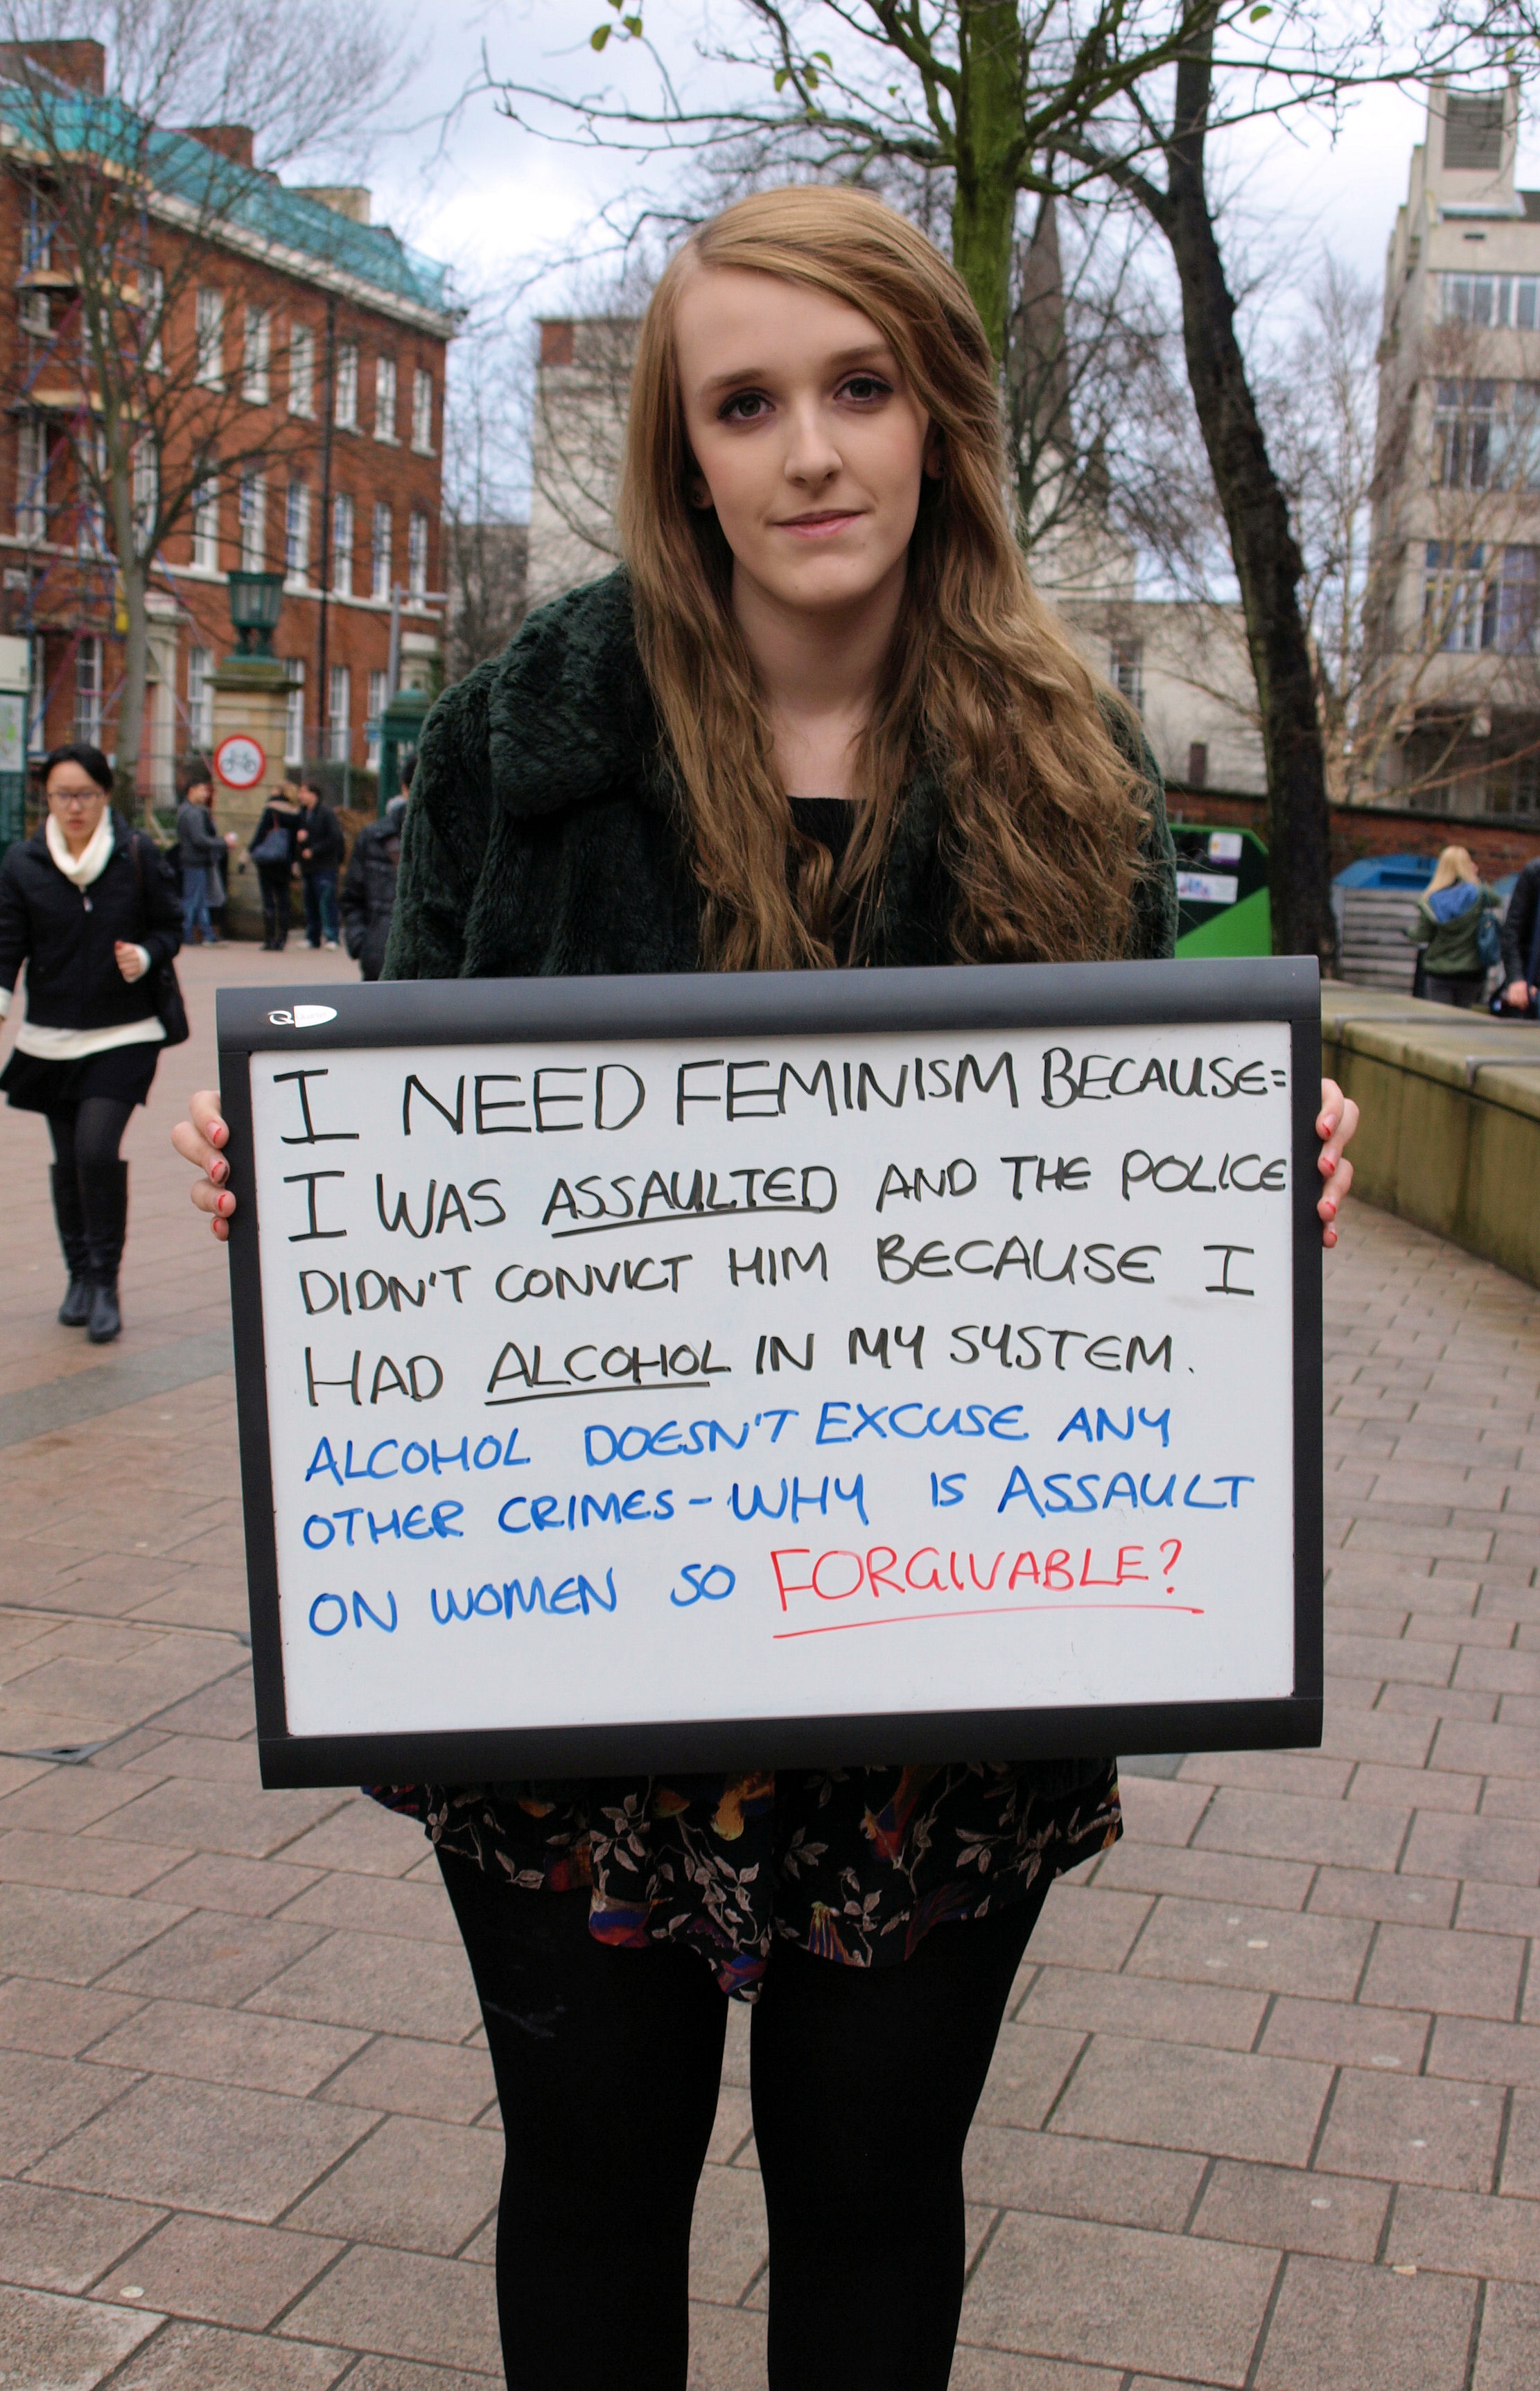 I NEED FEMINISM BECAUSE:
I WAS ASSAULTED AND THE POLICE
DIDN'T CONVICT HIM BECAUSE I
HAD ALCOHOL IN MY SYSTEM.
ALCOHOL DOESN'T EXCUSE ANY
OTHER CRIMES - WHY IS ASSAULT
ON WOMEN SO FORGIVABLE?